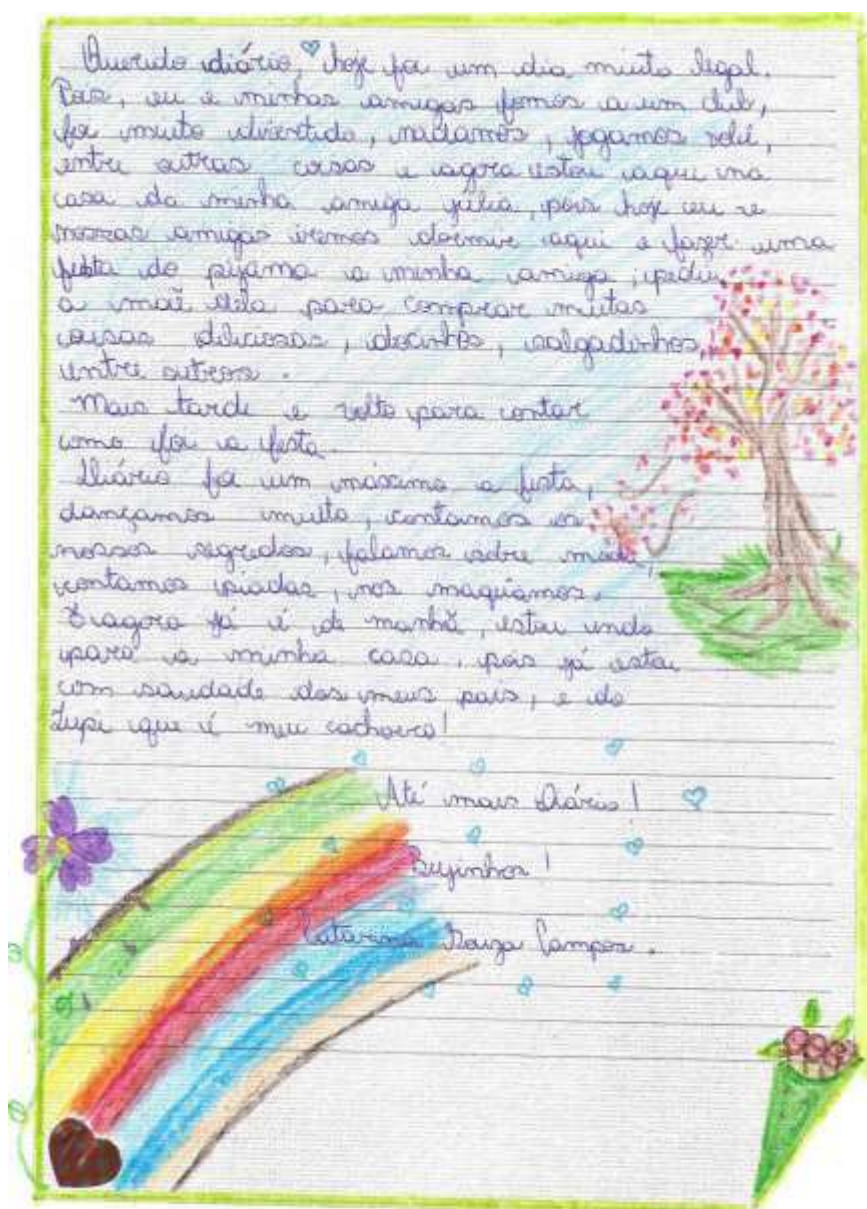 Querido diário, hoje foi um dia muito legal.
Pois, eu e minhas amigas fomos a um club,
foi muito divertido, nadamos, jogamos volei,
entre outras coisas e agora estou aqui na
casa da minha amiga júlia, pois hoje eu e
nossas amigas iremos dormir aqui e fazer uma
festa do pijama a minha amiga, pediu
a mãe dela para comprar muitas
coisas deliciosas, docinhos, salgadinhos,
entre outros.
Mais tarde e volto para contar
como foi a festa.
Diário foi um máximo a festa,
dançamos muito, contamos os
nossos segredos, falamos sobre moda,
contamos piadas, nos maquiamos.
E agora já é de manhã, estou indo
para a minha casa, pois já estou
com saudade dos meus pais, e do
Lupi que é meu cachorro!
Até mais Diário!
Beijinhos!
Catarina Souza Campos.